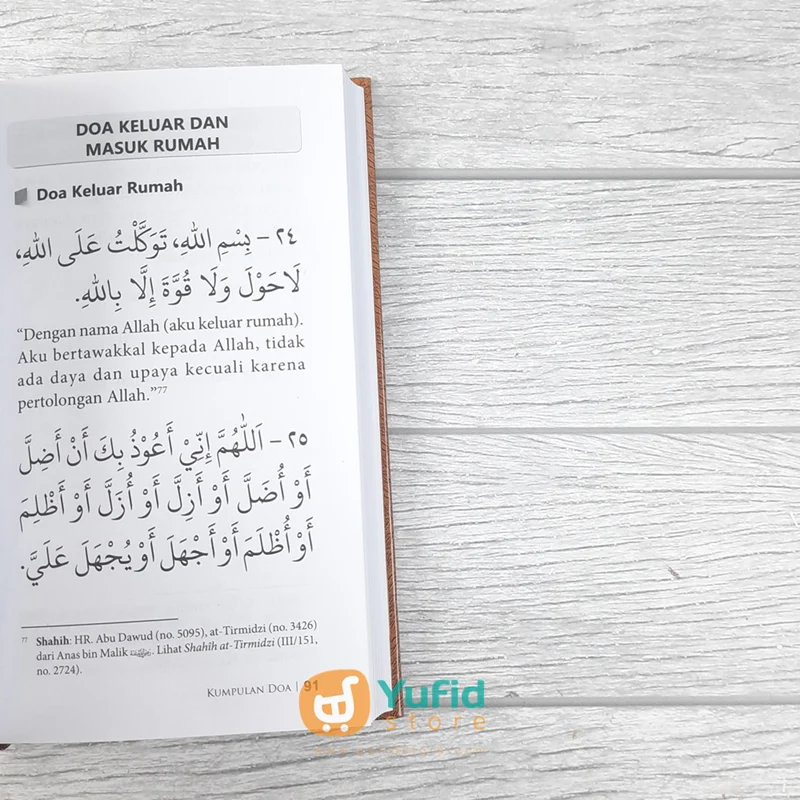 DOA KELUAR DAN
MASUK RUMAH
Doa Keluar Rumah
٢٤ – بِسْمِ اللهِ، تَوَكَّلْتُ عَلَى اللهِ،
لَاحَوْلَ وَلَا قُوَّةَ إِلَّا بِاللهِ.
“Dengan nama Allah (aku keluar rumah).
Aku bertawakkal kepada Allah, tidak
ada daya dan upaya kecuali karena
pertolongan Allah.”77
٢٥ – اَللّٰهُمَّ إِنِّيْ أَعُوْذُ بِكَ أَنْ أَضِلَّ
أَوْ أُضَلَّ أَوْ أَزِلَّ أَوْ أُزَلَّ أَوْ أَظْلِمَ
أَوْ أُظْلَمَ أَوْ أَجْهَلَ أَوْ يُجْهَلَ عَلَيَّ.
77 Shahih: HR. Abu Dawud (no. 5095), at-Tirmidzi (no. 3426)
dari Anas bin Malik . Lihat Shahih at-Tirmidzi (III/151,
no. 2724).
Kumpulan Doa | 91
Yufid
store